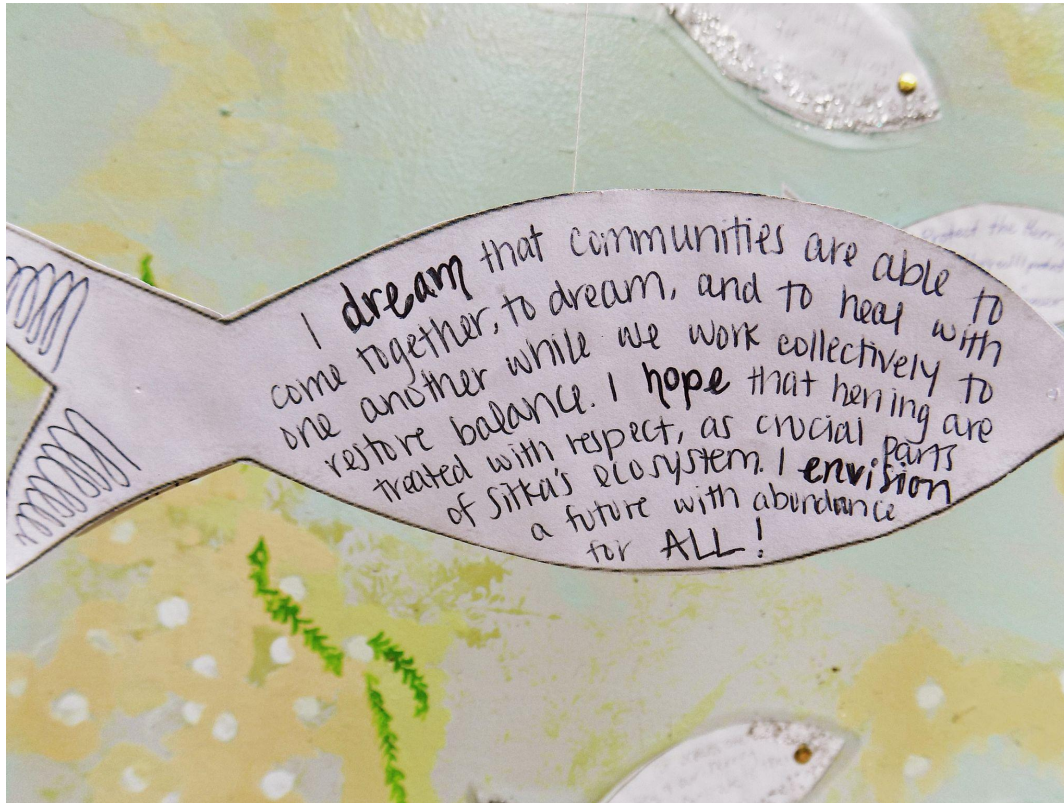 I dream that communities are able to
come together, to dream, and to heal with
one another while we work collectively to
restore balance. I hope that herring are
treated with respect, as crucial parts
of sitka's ecosystem. I envision
a future with abundance
for ALL!